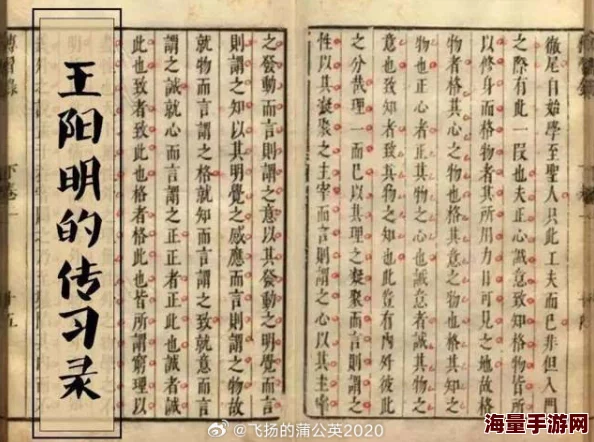 徹尾自始學至聖人只此工夫而已非但入門
之際有此一段也夫正心誠意致知格物皆所
以修身而格物者其所用力日可見之地故格
物者格其心之物也格其意之物也格其知之
物也正心者正其物之心也誠意者誠其物之
意也致知者致其物之知也此豈有內外彼此
之分哉理一而已以其理之凝聚而言則謂之
性以其凝聚之主宰而言則謂之心以其主宰
之發動而言則謂之意以其發動之明覺而言
則謂之知以其明覺之感應而言則謂之物故
就物而言謂之格就知而言謂之致就意而言
謂之誠就心而言謂之正正者正此也誠者誠
此也致者致此也格者格此也皆所謂窮理以
王阳明的传习录
@飞扬的蒲公英2020
海量手游网